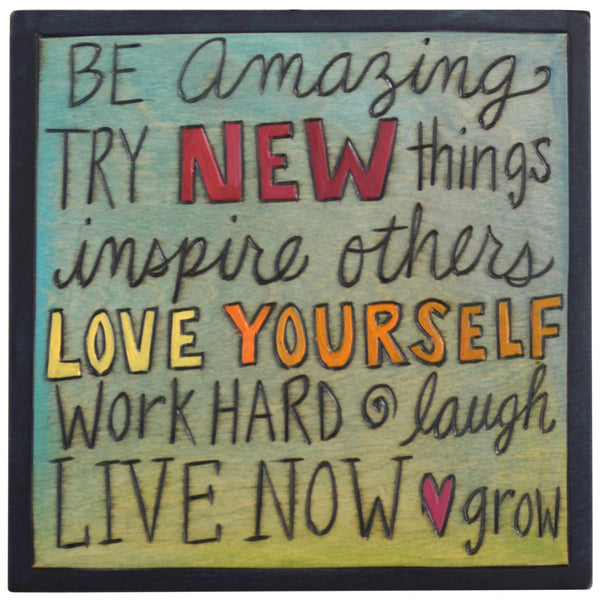 BE Amazing
TRY NEW things
inspire others
LOVE YOURSELF
WORK HARD laugh
LIVE NOW grow